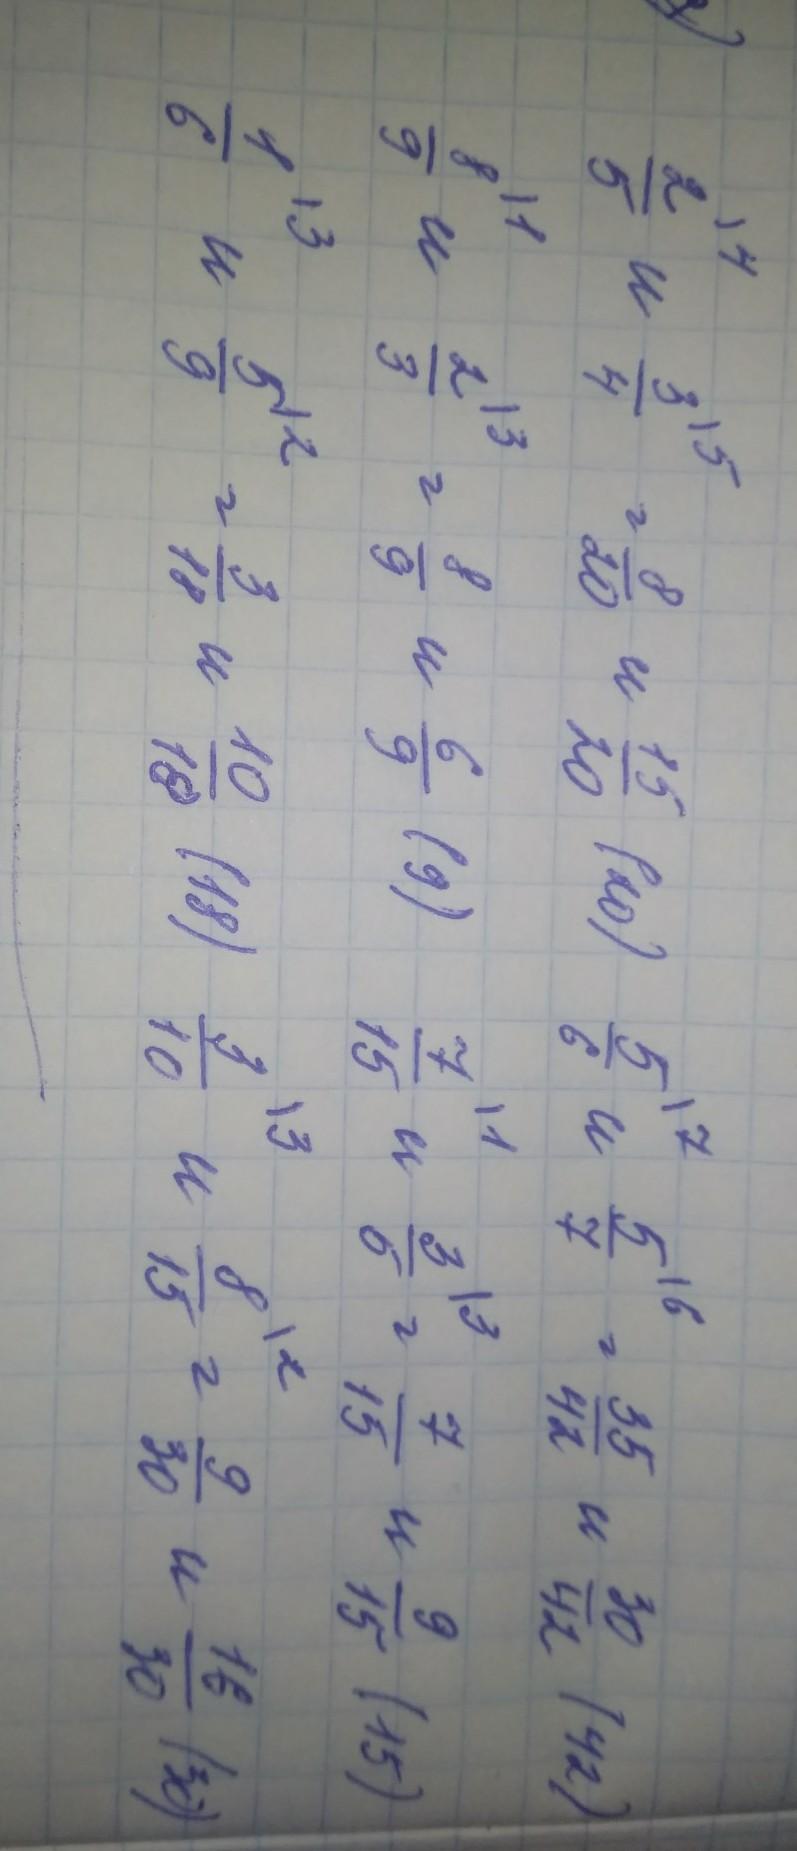 2/5 \4 и 3/4 \5 = 8/20 и 15/20 (20) 5/6 \7 и 5/7 \6 = 35/42 и 30/42 (42)
8/9 \1 и 2/3 \3 = 8/9 и 6/9 (9) 7/15 \1 и 3/5 \3 = 7/15 и 9/15 (15)
1/6 \3 и 5/9 \2 = 3/18 и 10/18 (18) 3/10 \3 и 8/15 \2 = 9/30 и 16/30 (30)